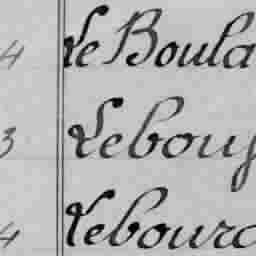 4 Le Boula
3 Leboug
4 Lebourd